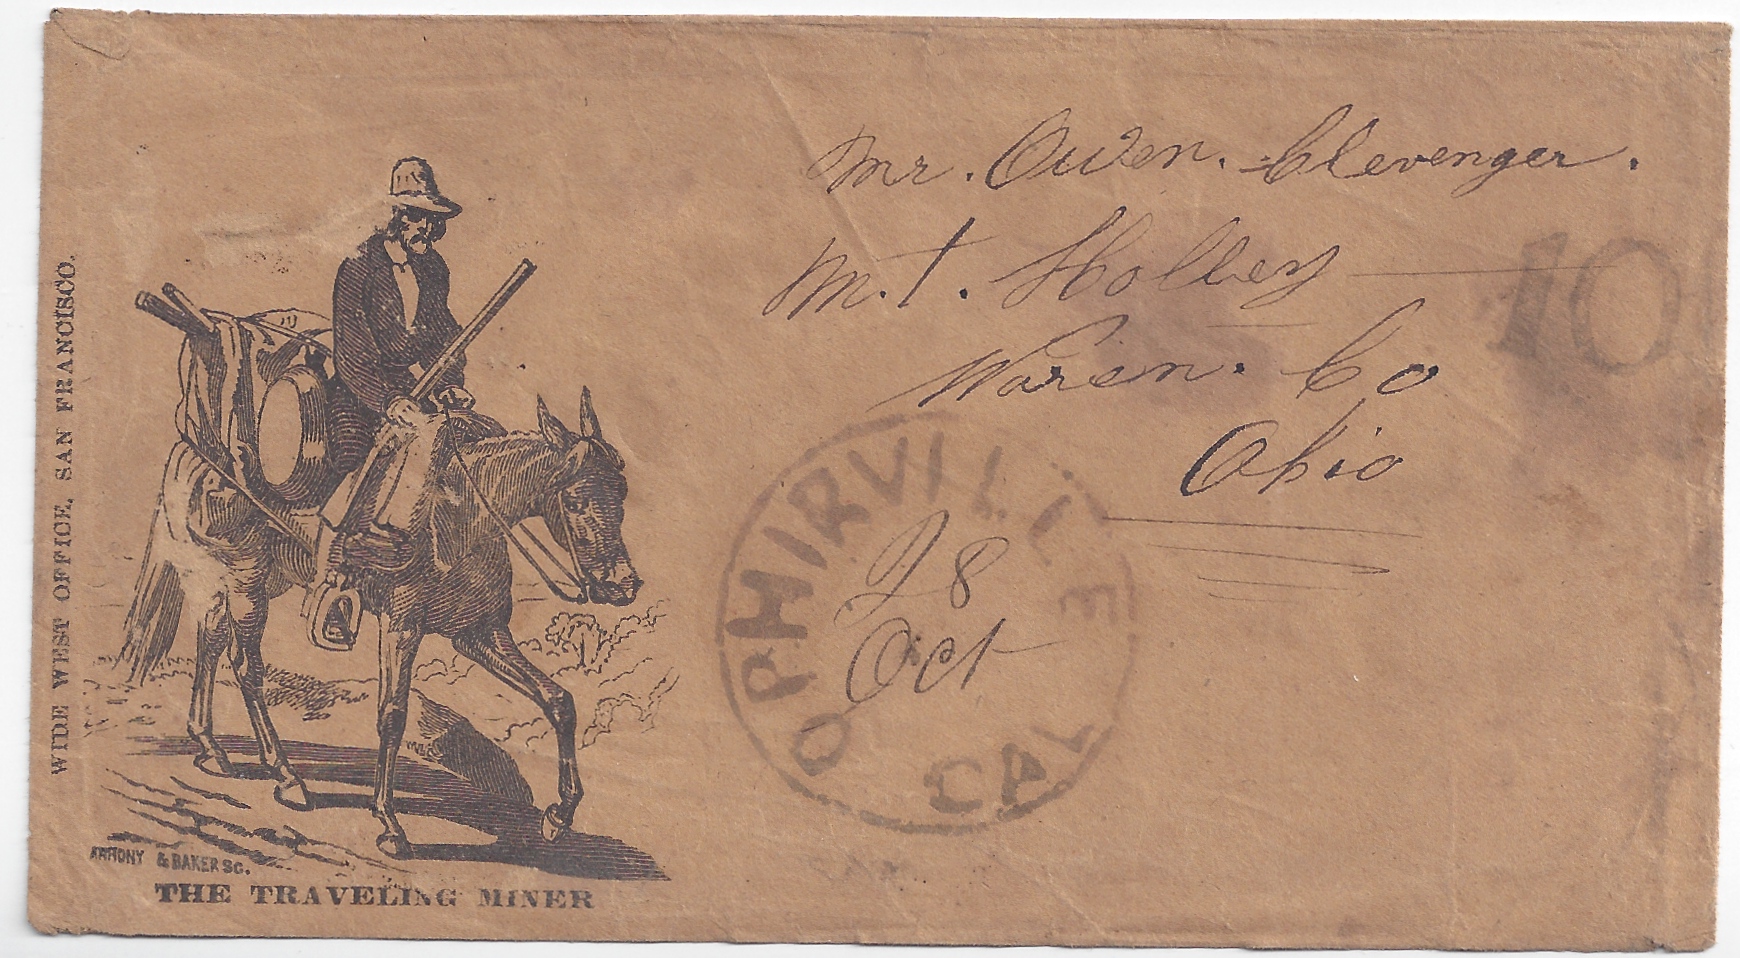 Mr. Owen. Clevenger.
M.t. Holley
Waren. Co
Ohio
10
OPHIRVILLE
28
Oct
CAL
WIDE WEST OFFICE, SAN FRANCISCO.
ANTHONY & BAKER SC.
THE TRAVELING MINER